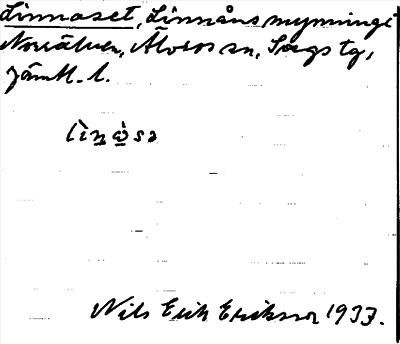 Linnaset, Linnåns mynning i
Norrälven, Älvros sn, Svegs tg,
Jämtl. l.
lìnɷ̀sə
Nils Erik Eriksson 1933.